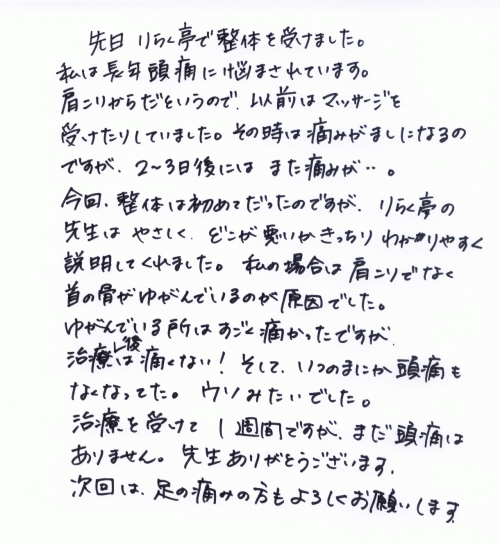 先日 りらく亭で整体を受けました。
私は長年頭痛に悩まされています。
肩こりからだというので、以前はマッサージを
受けたりしていました。その時は痛みがましになるの
ですが、2〜3日後には また痛みが‥。
今回、整体は初めてだったのですが、りらく亭の
先生は やさしく、どこが悪いかきっちり わかりやすく
説明してくれました。私の場合は肩こりでなく
首の骨がゆがんでいるのが原因でした。
ゆがんでいる所はすごく痛かったですが、
治療後は痛くない！そして、いつのまにか頭痛も
なくなってた。ウソみたいでした。
治療を受けて 1週間ですが、まだ頭痛は
ありません。先生ありがとうございます。
次回は、足の痛みの方もよろしくお願いします。